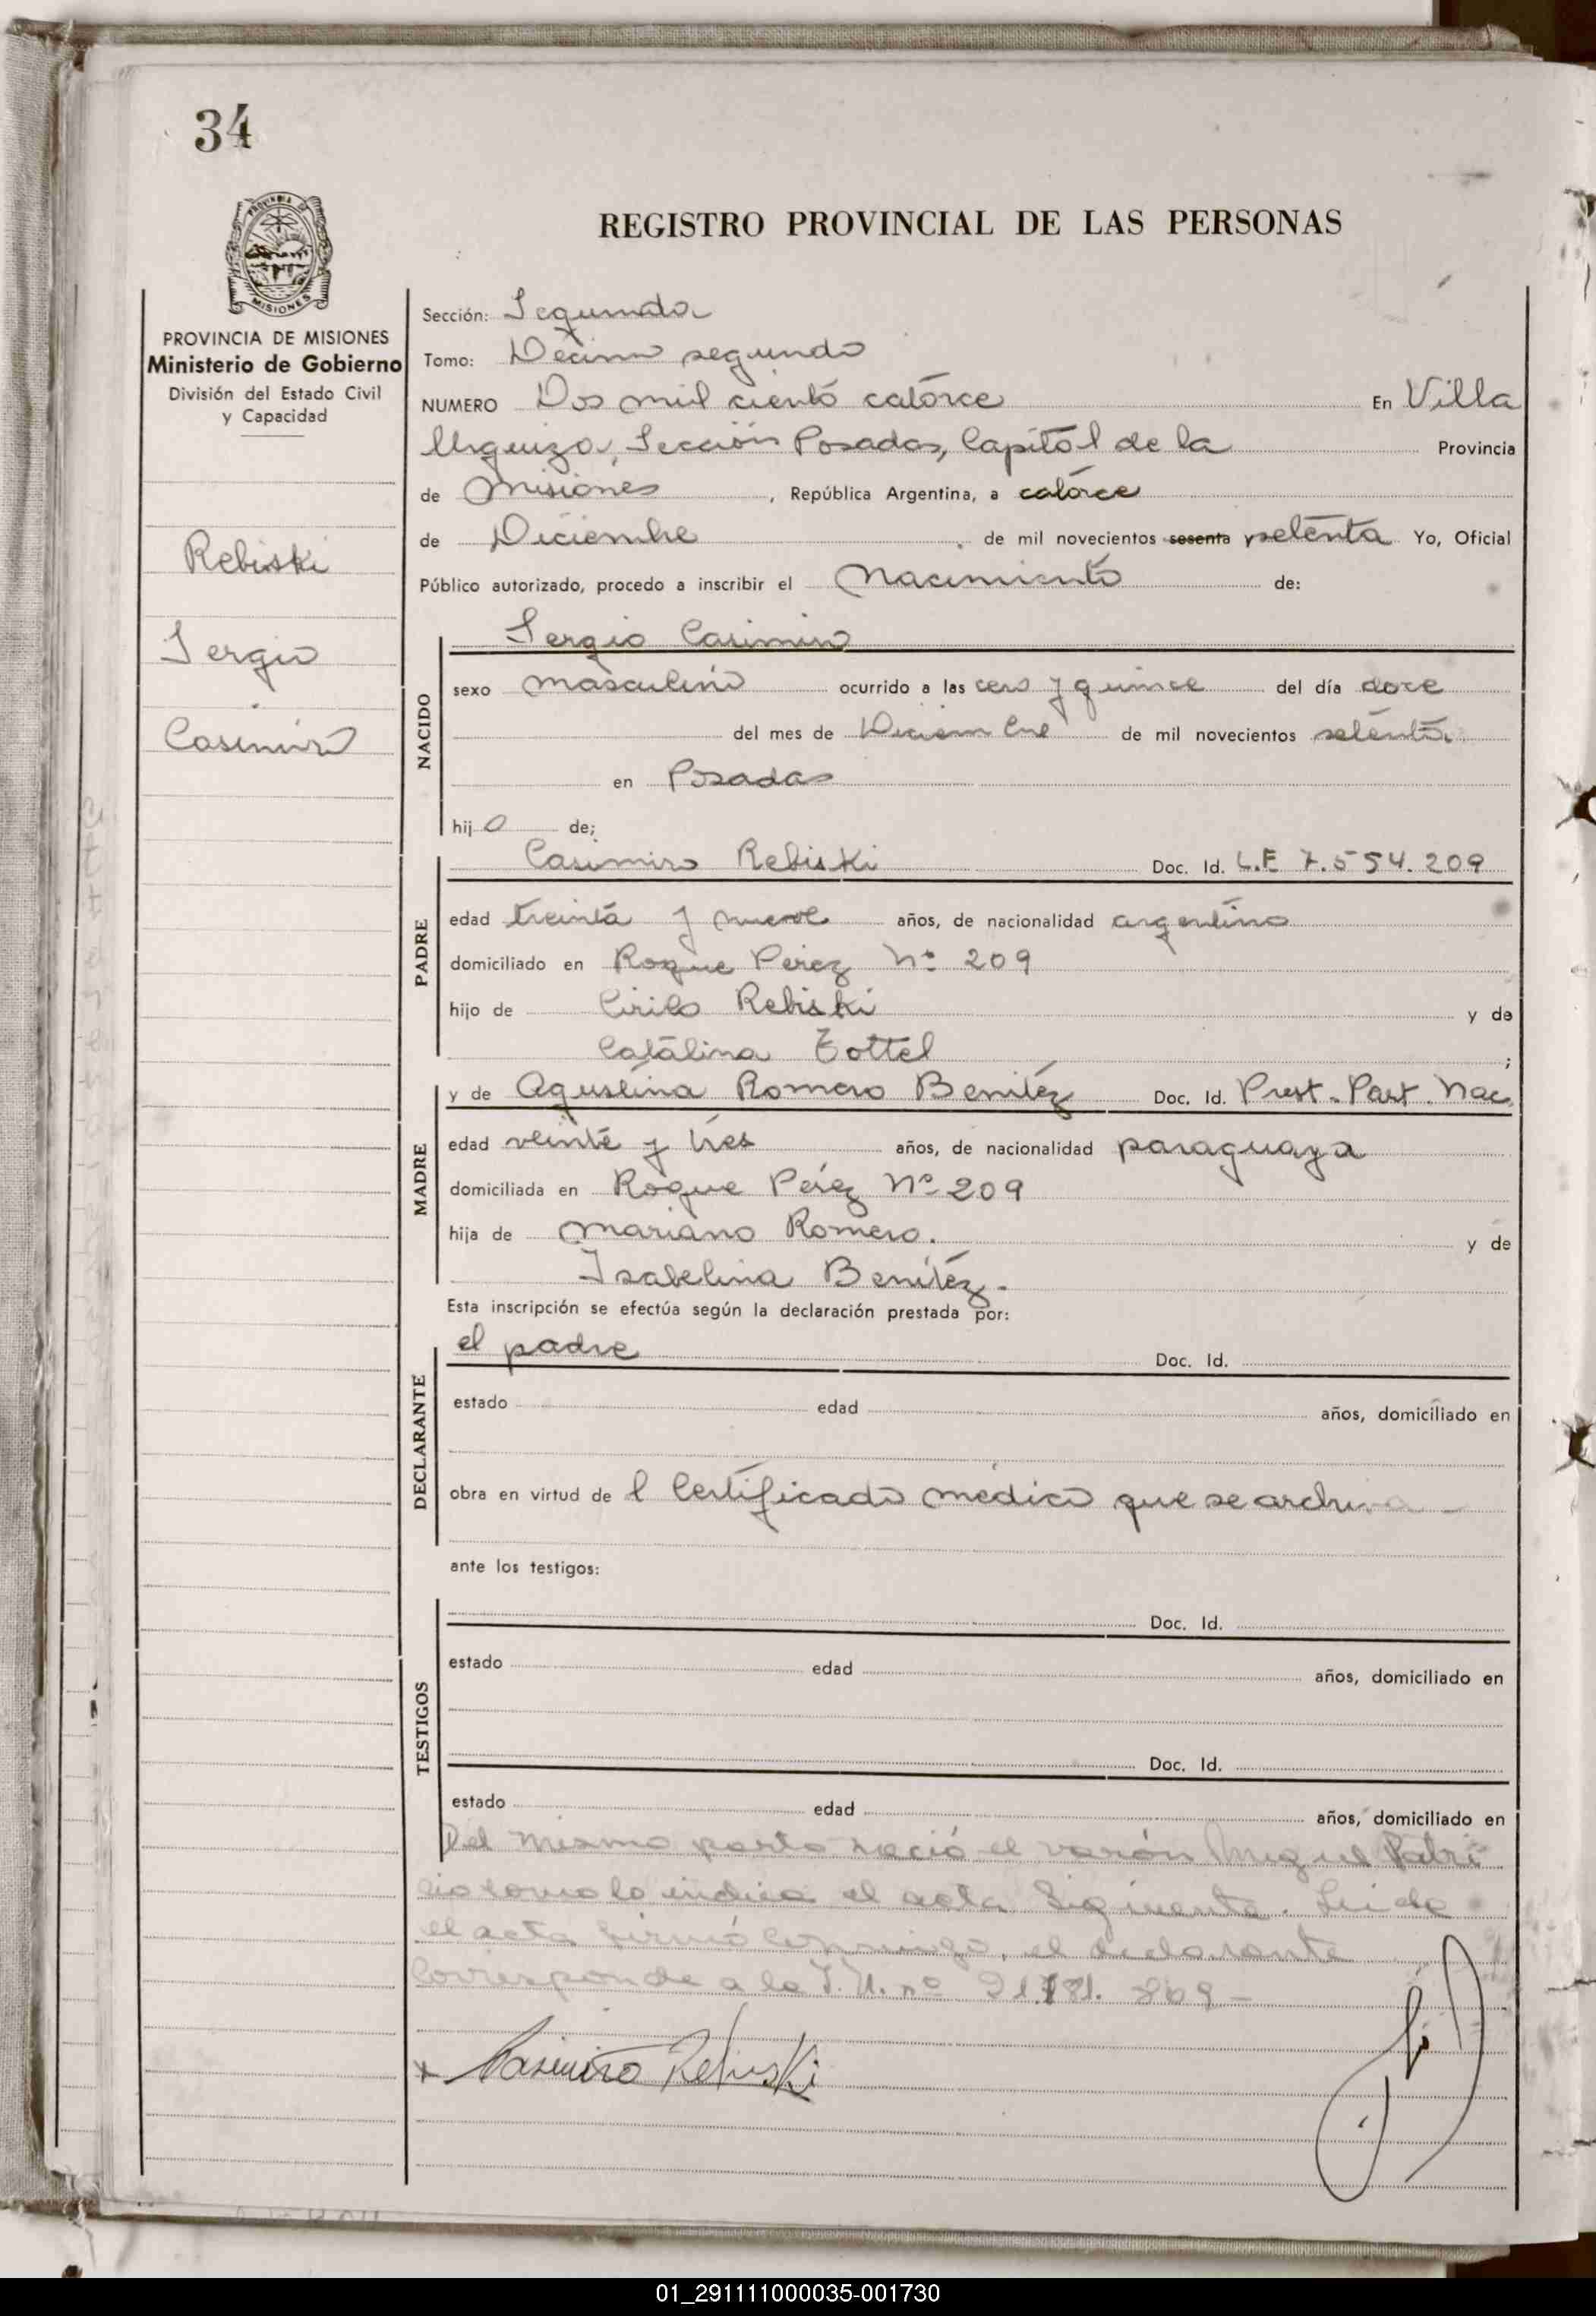 34
REGISTRO PROVINCIAL DE LAS PERSONAS
PROVINCIA DE MISIONES
Ministerio de Gobierno
División del Estado Civil
y Capacidad
Rebiski
Sergio
Casimiro
Sección: Segunda
Tomo: Décimo segundo
NUMERO Dos mil ciento catorce En Villa
Urquiza, Sección Posadas, Capital de la Provincia
de Misiones, República Argentina, a catorce
de Diciembre de mil novecientos sesenta y setenta Yo, Oficial
Público autorizado, procedo a inscribir el Nacimiento de:
NACIDO
Sergio Casimiro
sexo masculino ocurrido a las cero y quince del día doce
del mes de Diciembre de mil novecientos setenta
en Posadas
hijo de;
PADRE
Casimiro Rebiski Doc. Id. L.E 7.554.209
edad treinta y nueve años, de nacionalidad argentino
domiciliado en Roque Perez Nº 209
hijo de Cirilo Rebiski y de
Catalina Tottel;
MADRE
y de Agustina Romero Benitez Doc. Id. Prest. Part. Nac.
edad veinte y tres años, de nacionalidad paraguaya
domiciliada en Roque Pérez Nº 209
hija de Mariano Romero. y de
Isabelina Benitez.
Esta inscripción se efectúa según la declaración prestada por:
DECLARANTE
el padre Doc. Id.
estado edad años, domiciliado en
obra en virtud de l Certificado médico que se archiva
ante los testigos:
TESTIGOS
Doc. Id.
estado edad años, domiciliado en
Doc. Id.
estado edad años, domiciliado en
Del mismo parto nació el varón Miguel Patri
cio como lo indica el acta siguiente. Leida
el acta firmó conmigo, el declarante
Corresponde a la I. U. nº 869
Casimiro Rebiski
01_291111000035-001730